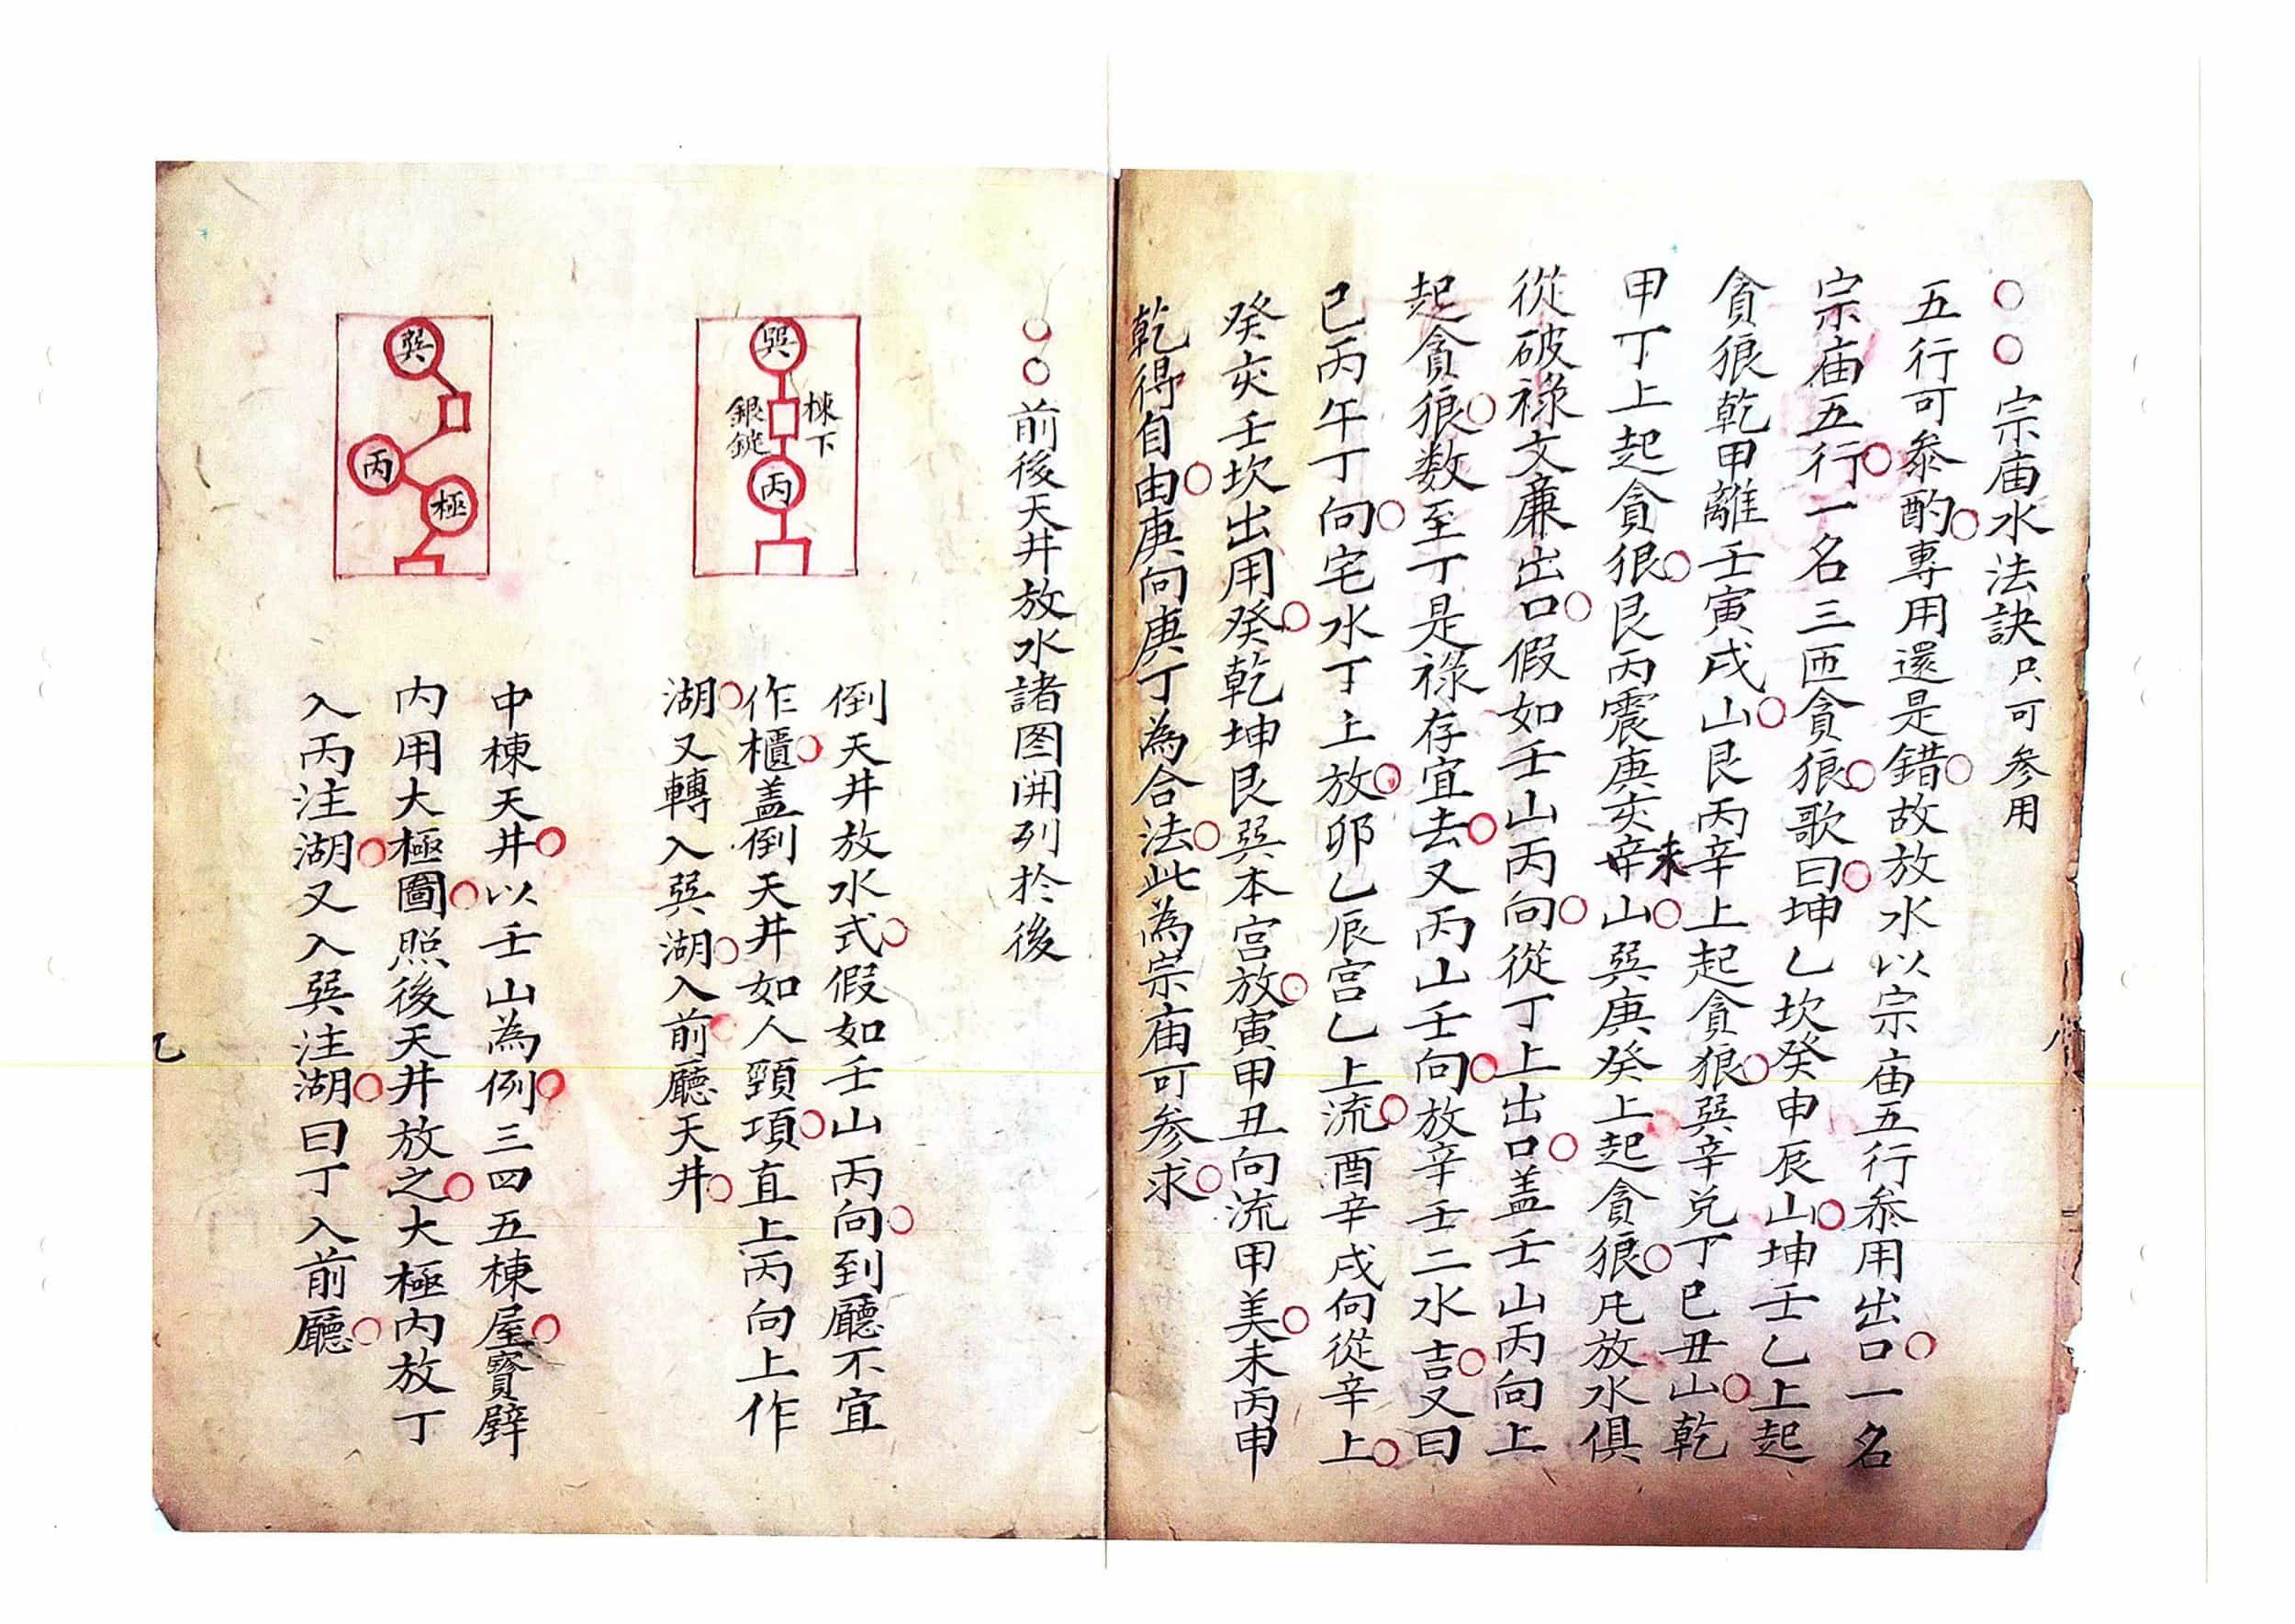 ○○宗庙水法訣只可参用
五行可叅酌○專用還是錯○故放水以宗庙五行叅用出口○一名
宗庙五行○一名三匝貪狼○歌曰○坤乙坎癸申辰山○坤壬乙上起
貪狼乾甲離壬寅戌山○艮丙辛上起貪狼○巽辛兑丁巳丑山○乾
甲丁上起貪狼○艮丙震庚亥未山○巽庚癸上起貪狼○凡放水俱
從破祿文廉出口○假如壬山丙向○從丁上出口○盖壬山丙向上
起貪狼○数至丁是祿存宜去○又丙山壬向○放辛壬二水吉○又曰
巳丙午丁向○宅水丁上放○卯乙辰宫乙上流○酉辛戌向從辛上○
癸亥壬坎出用癸○乾坤艮巽本宫放○寅甲丑向流甲美○未丙申
乾得自由○庚向庚丁為合法○此為宗庙可参求○
○○前後天井放水諸图開列於後
巽
棟下
銀錠
丙
倒天井放水式○假如壬山丙向○到廳不宜
作櫃○盖倒天井如人頸項○直上丙向上作
湖○又轉入巽湖○入前廳天井○
巽
丙
極
中棟天井○以壬山為例○三四五棟屋○寳壁
内用大極圖○照後天井放之○大極内放丁
入丙注湖○又入巽注湖○曰丁入前廳○